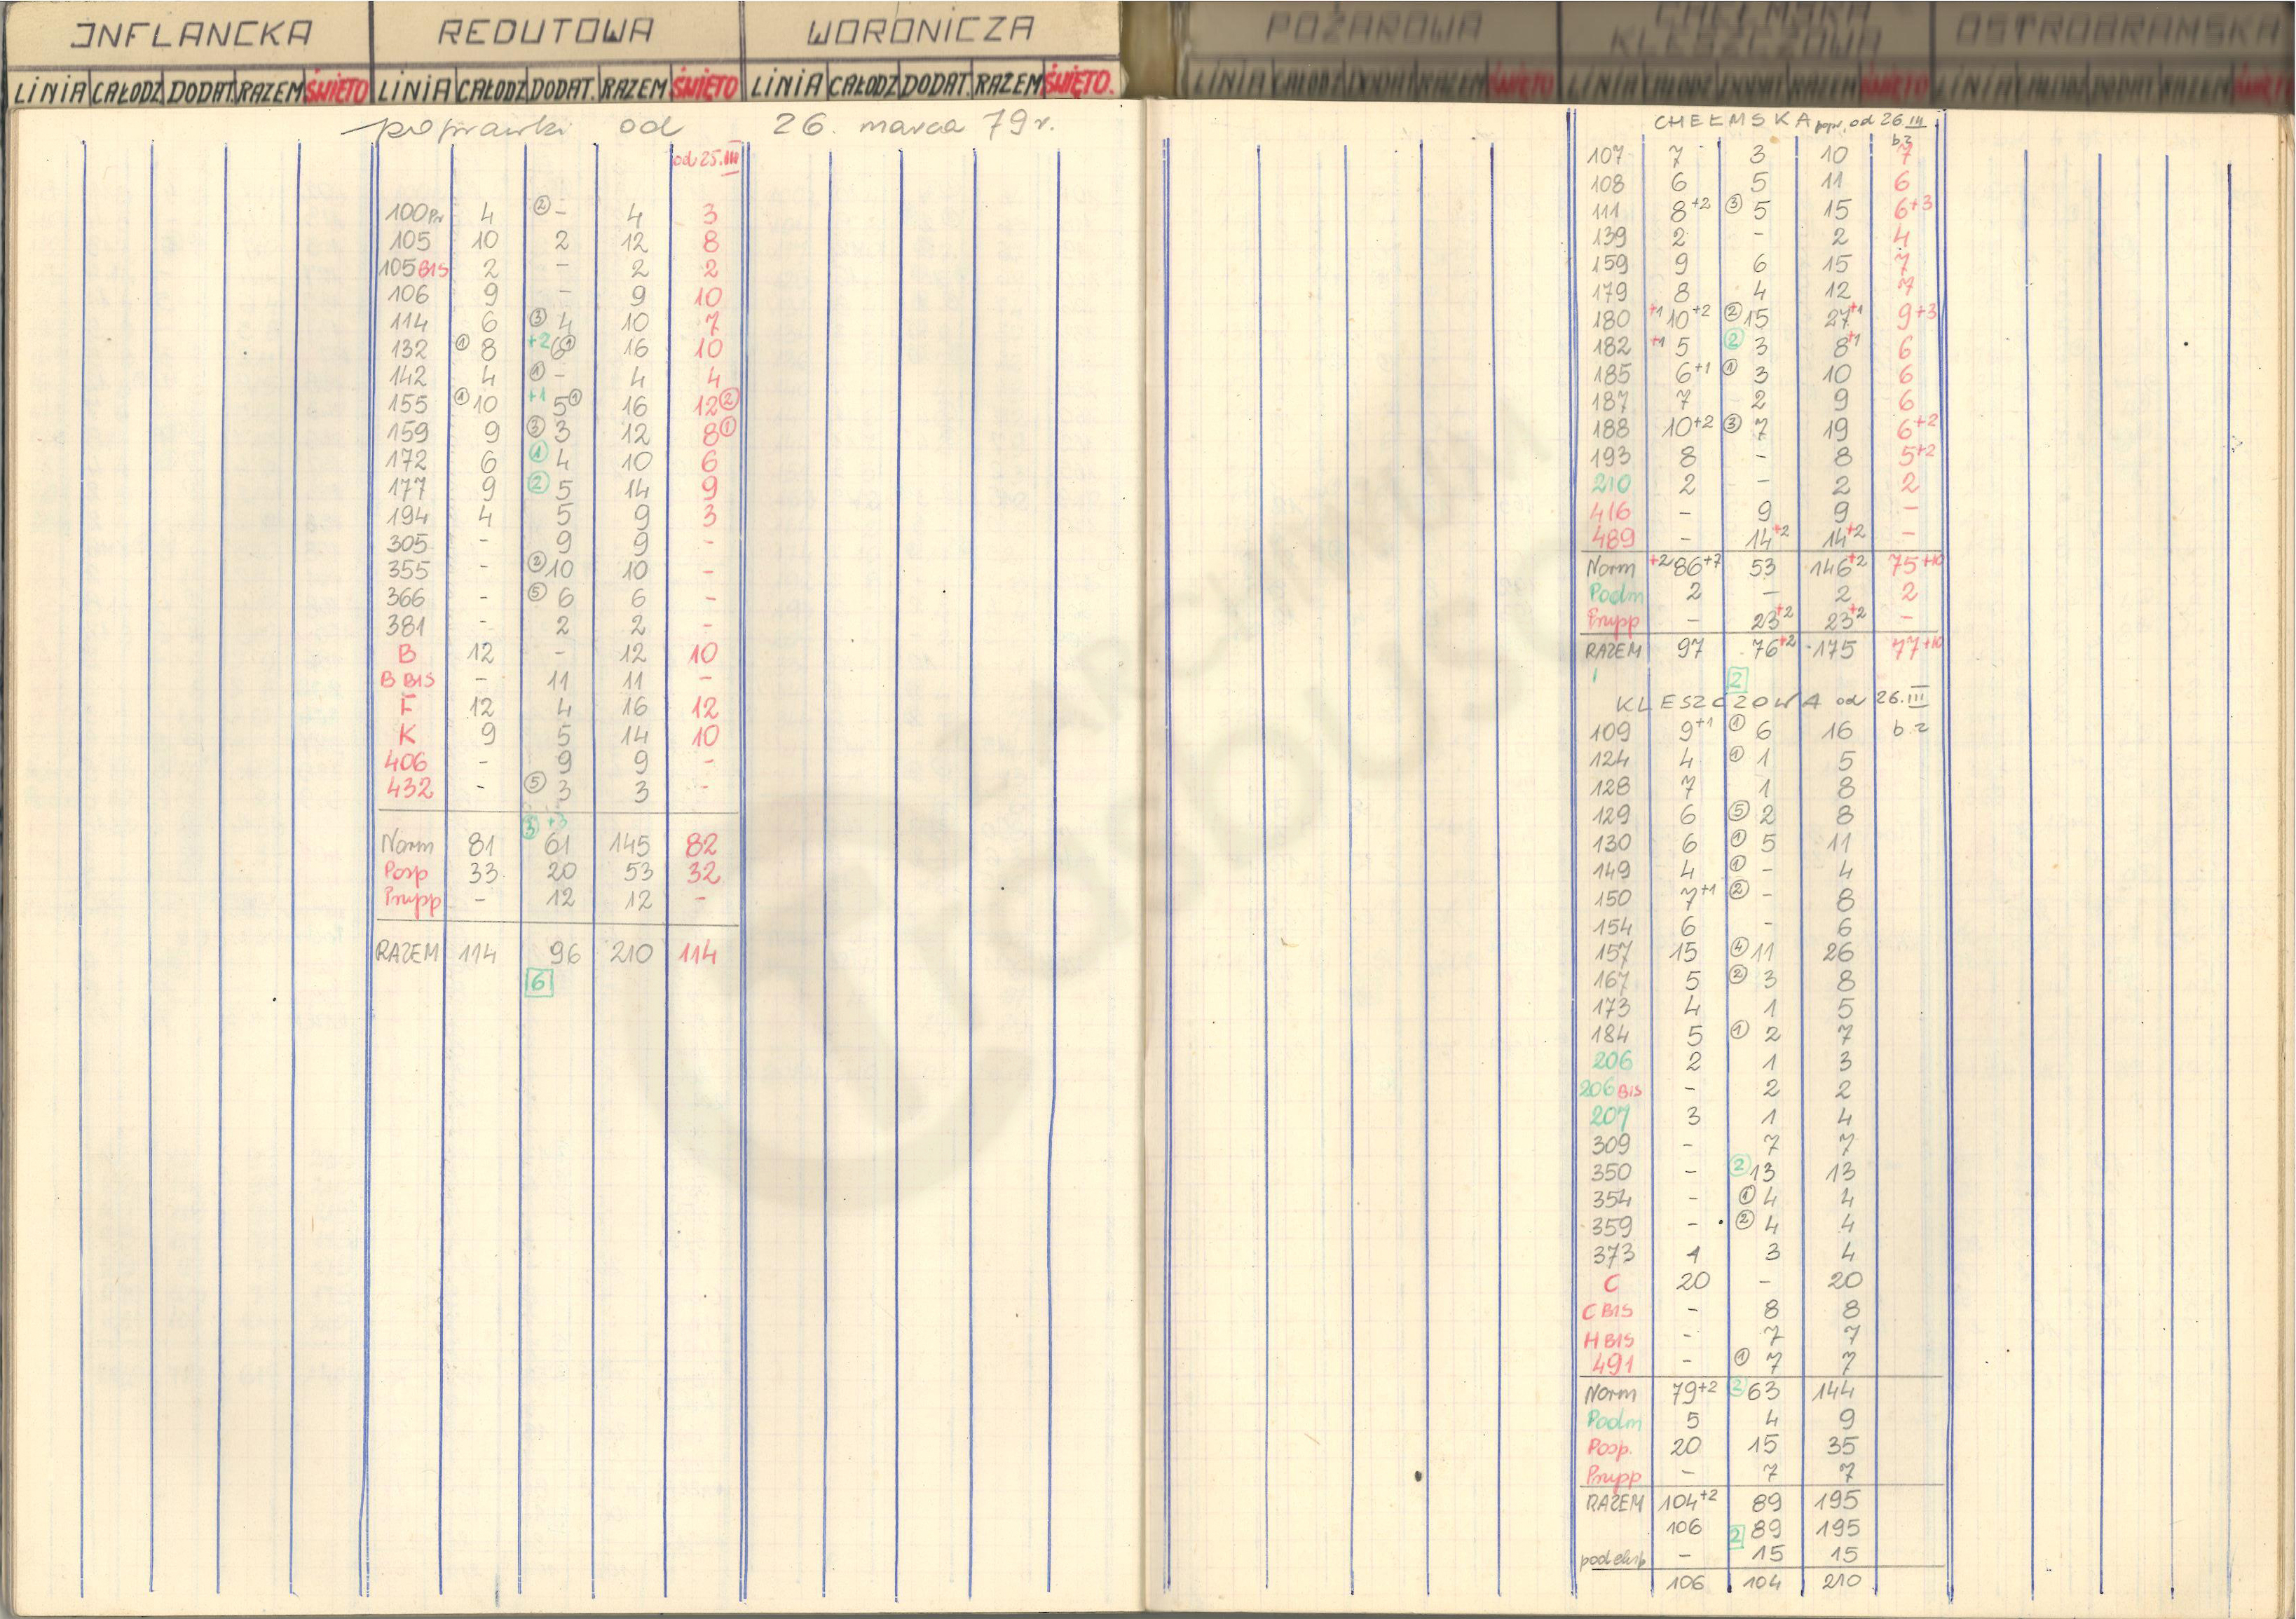 INFLANCKA REDUTOWA WORONICZA POŻAROWA CHEŁMSKA KLESZCZOWA OSTROBRAMSKA
LINIA CAŁODZ DODAT. RAZEM ŚWIĘTO LINIA CAŁODZ DODAT. RAZEM ŚWIĘTO LINIA CAŁODZ DODAT. RAZEM ŚWIĘTO. LINIA CAŁODZ DODAT RAZEM ŚWIĘTO LINIA CAŁODZ DODAT RAZEM ŚWIĘTO LINIA CAŁODZ DODAT RAZEM ŚWIĘTO
poprawki od 26. marca 79 r.
od 25.III
100Pr 4 ② - 4 3
105 10 2 12 8
105 BIS 2 - 2 2
106 9 - 9 10
114 6 ③ 4 10 7
132 ① 8 +2 6 ① 16 10
142 4 ① - 4 4
155 ① 10 +1 5 ① 16 12 ②
159 9 ③ 3 12 8 ①
172 6 ① 4 10 6
177 9 ② 5 14 9
194 4 5 9 3
305 - 9 9 -
355 - ② 10 10 -
366 - ⑤ 6 6 -
381 - 2 2 -
B 12 - 12 10
B BIS - 11 11 -
F 12 4 16 12
K 9 5 14 10
406 - 9 9 -
432 - ⑤ 3 3 -
③ +3
Norm 81 61 145 82
Posp 33 20 53 32
Pńpp - 12 12 -
RAZEM 114 96 210 114
6
CHEŁMSKA popr. od 26 III
b.z
107 7 3 10 7
108 6 5 11 6
111 8+2 ③ 5 15 6+3
139 2 - 2 4
159 9 6 15 7
179 8 4 12 7
180 +1 10+2 ② 15 27+1 9+3
182 +1 5 ② 3 8+1 6
185 6+1 ① 3 10 6
187 7 2 9 6
188 10+2 ③ 7 19 6+2
193 8 - 8 5+2
210 2 - 2 2
416 - 9 9 -
489 - 14+2 14+2 -
Norm +2 86+7 53 146+2 75+10
Podm 2 - 2 2
Pńpp - 23+2 23+2 -
RAZEM 97 76+2 175 77+10
2
KLESZCZOWA od 26.III
109 9+1 ① 6 16 b.z
124 4 ① 1 5
128 7 1 8
129 6 ⑤ 2 8
130 6 ① 5 11
149 4 ① - 4
150 7+1 ② - 8
154 6 - 6
157 15 ④ 11 26
167 5 ② 3 8
173 4 1 5
184 5 ① 2 7
206 2 1 3
206 BIS - 2 2
207 3 1 4
309 - 7 7
350 - ② 13 13
354 - ① 4 4
359 - ② 4 4
373 1 3 4
C 20 - 20
C BIS - 8 8
H BIS - 7 7
491 - ① 7 7
Norm 79+2 ② 63 144
Podm 5 4 9
Posp. 20 15 35
Pńpp - 7 7
RAZEM 104+2 89 195
106 2 89 195
podeksp - 15 15
106 104 210